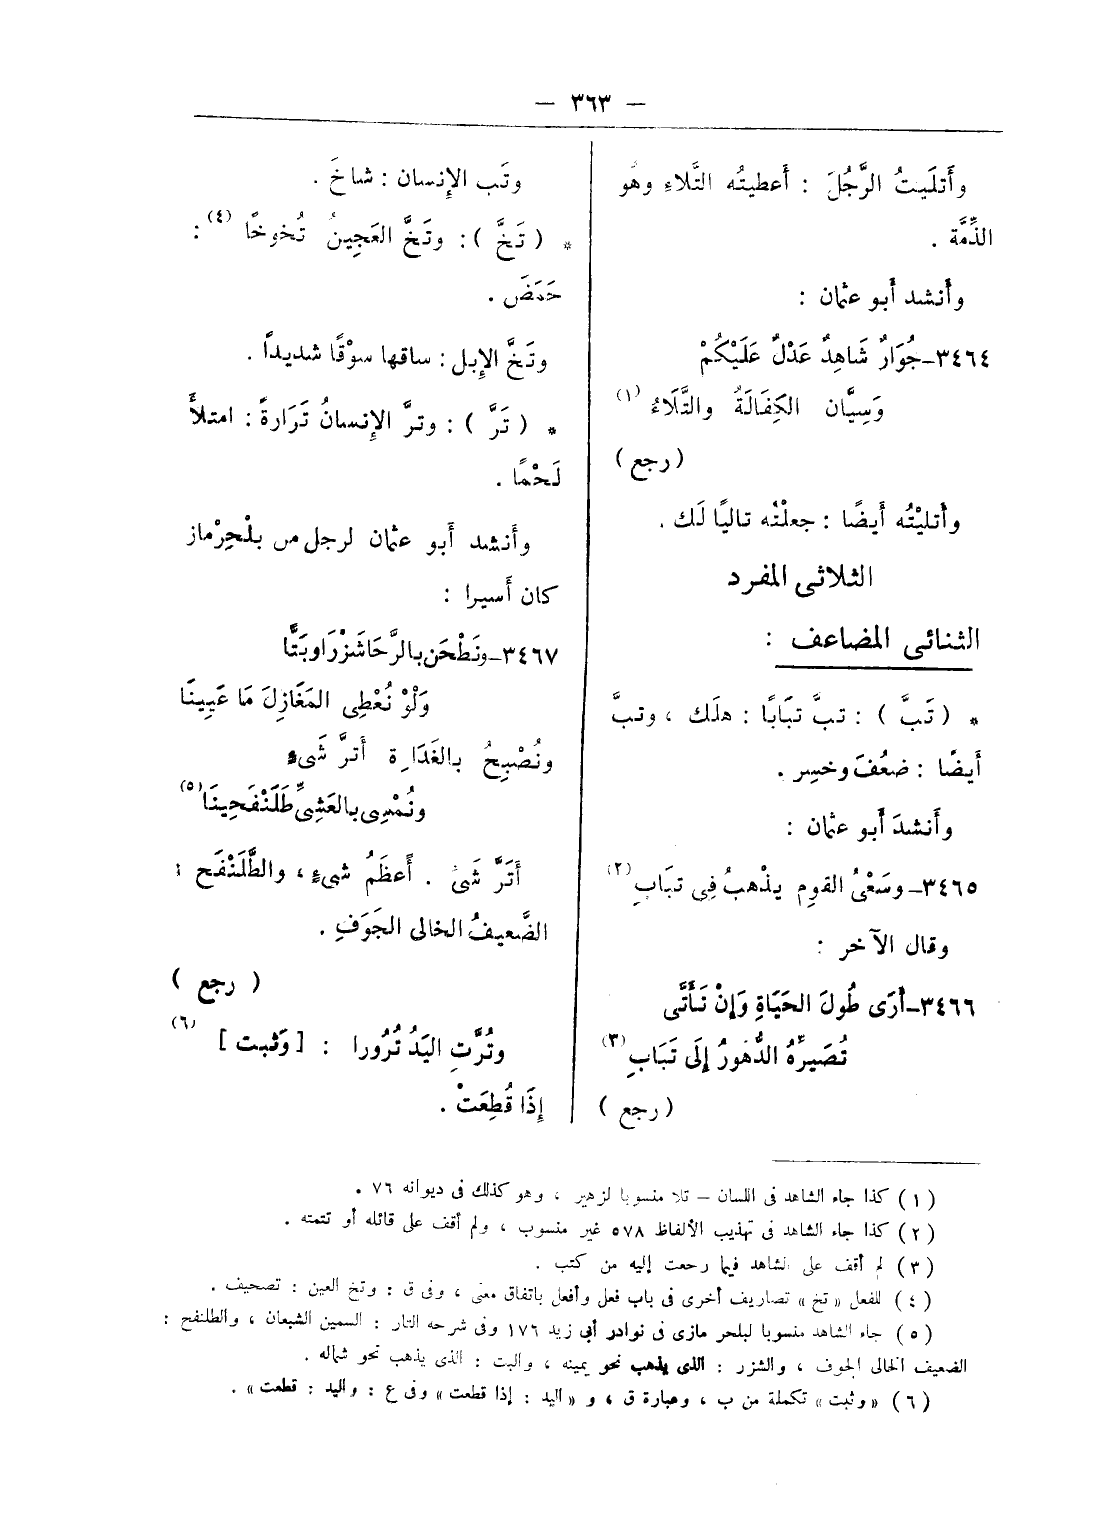 — ٣٦٣ —
وأَتلَيتُ الرَّجُلَ : أَعطيتُه التَّلاء وهُو
الذِّمَّة .
وأَنشد أَبو عثمان :
٣٤٦٤ـ جُوَارٌ شَاهِدٌ عَدْلٌ عَلَيْكُمْ
وَسِيَّان الكَفَالَةُ والتَّلَاءُ (١)
( رجع )
وأَتليْتُه أَيضًا : جعلْتُه تاليًا لَك .
الثلاثى المفرد
الثنائى المضاعف :
* ( تَبَّ ) : تبَّ تبَابًا : هلَك ، وتبَّ
أَيضًا : ضعُفَ وخسِر .
وأَنشدَ أَبو عثمان :
٣٤٦٥ـ وسَعْىُ القومِ يذْهبُ فِى تبَابِ (٢)
وقال الآخر :
٣٤٦٦ـ أَرَى طُولَ الحَيَاةِ وَإِنْ تَأَتَّى
تُصَيِّرُهُ الدُّهُورُ إِلَى تَبَابِ (٣)
( رجع )
وتَب الإِنسان : شاخَ .
* ( تَخَّ ) : وتَخَّ العَجِينُ تُخوخًا (٤) :
حَمَضَ .
وتَخَّ الإِبل : ساقها سوْقًا شديداً .
* ( تَرَّ ) : وترَّ الإِنسانُ تَرَارةً : امتلأَ
لَحْمًا .
وأَنشد أَبو عثمان لرجل من بلْحِرْماز
كان أَسيرا :
٣٤٦٧ـ ونَطْحَن بالرَّحَا شَزْرًا وبَتًّا
وَلَوْ نُعْطِى المَغَازِلَ مَا عَيِينَا
ونُصْبِحُ بالغَدَاةِ أَترَّ شَىءٍ
ونُمْسِى بالعَشِىِّ طَلَنْفَحِينَا (٥)
أَتَرَّ شَىْ . أَعظَمُ شىءٍ ، والطَّلَنْفَح :
الضَّعيفُ الخالى الجَوَفِ .
( رجع )
وتُرَّتِ اليَدُ تُرُورا : [ وَثبت ] (٦)
إِذَا قُطِعَتْ .
(١) كذا جاء الشاهد فى اللسان – تلا منسوبا لزهير ، وهو كذلك فى ديوانه ٧٦ .
(٢) كذا جاء الشاهد فى تهذيب الألفاظ ٥٧٨ غير منسوب ، ولم أقف على قائله أو تتمته .
(٣) لم أقف على الشاهد فيما رجعت إليه من كتب .
(٤) للفعل « تخ » تصاريف أخرى فى باب فعل وأفعل باتفاق معنى ، وفى ق : وتخ العين : تصحيف .
(٥) جاء الشاهد منسوبا لبلحر مازى فى نوادر أبى زيد ١٧٦ وفى شرحه التار : السمين الشبعان ، والطلنفح :
الضعيف الخالى الجوف ، والشزر : الذى يذهب نحو يمينه ، والبت : الذى يذهب نحو شماله .
(٦) « وثبت » تكملة من ب ، وعبارة ق ، و « اليد : إذا قطعت » وفى ع : واليد : قطعت » .